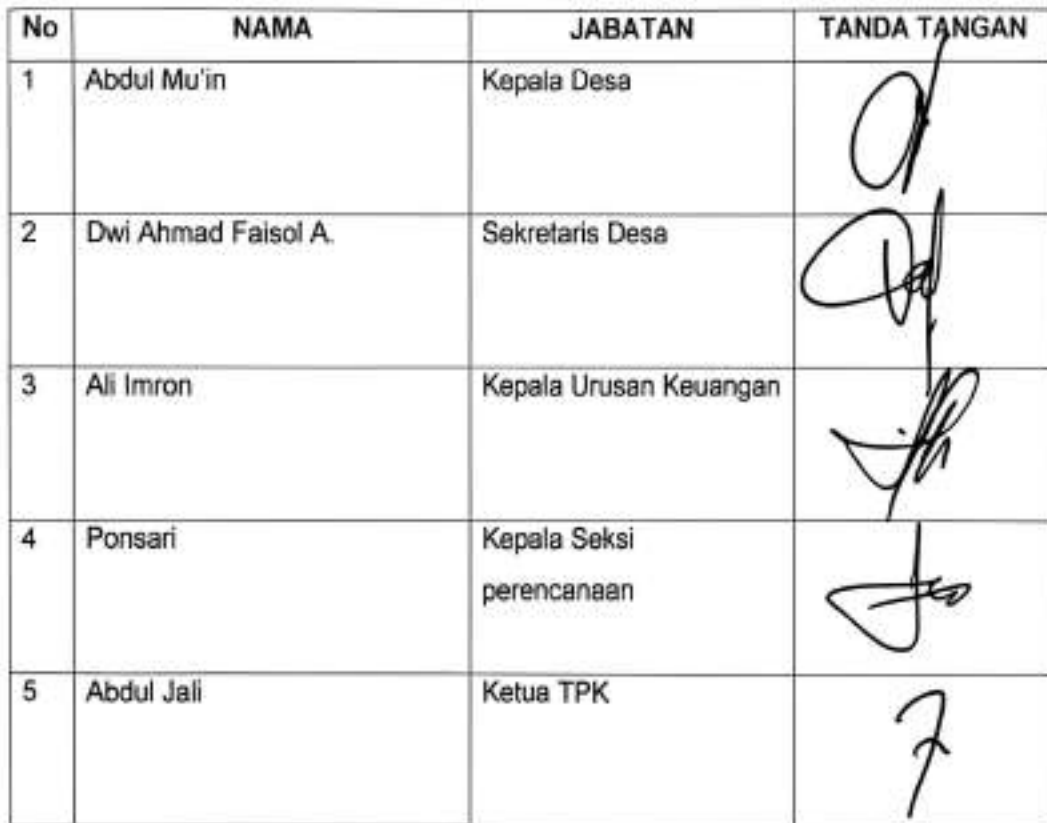 No NAMA JABATAN TANDA TANGAN
1 Abdul Mu'in Kepala Desa
2 Dwi Ahmad Faisol A. Sekretaris Desa
3 Ali Imron Kepala Urusan Keuangan
4 Ponsari Kepala Seksi
perencanaan
5 Abdul Jali Ketua TPK